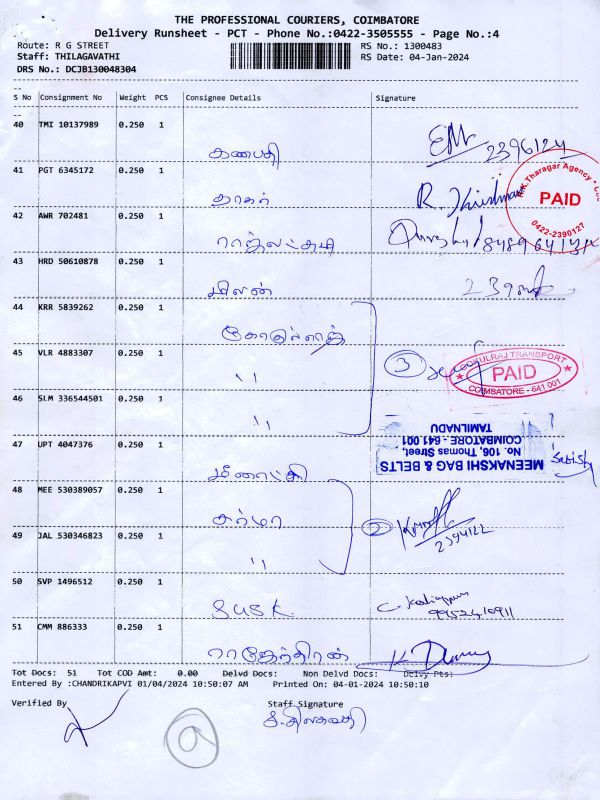 THE PROFESSIONAL COURIERS, COIMBATORE
Delivery Runsheet - PCT - Phone No.:0422-3505555 - Page No.:4
Route: R G STREET RS No.: 1300483
Staff: THILAGAVATHI RS Date: 04-Jan-2024
DRS No.: DCJB130048304
S No Consignment No Weight PCS Consignee Details Signature
40 TMI 10137989 0.250 1
கணபதி 2396124
41 PGT 6345172 0.250 1
தாகர் R. Krishnan
PAID
0422-2390127
42 AWR 702481 0.250 1
ராஜலட்சுமி
43 HRD 50610878 0.250 1
மிலன்
44 KRR 5839262 0.250 1
45 VLR 4883307 0.250 1
" 3
GOKULRAJ TRANSPORT
PAID
COIMBATORE - 641 001
46 SLM 336544501 0.250 1
"
MEENAKSHI BAG & BELTS
No. 106, Thomas Street,
COIMBATORE - 641 001
TAMILNADU
47 UPT 4047376 0.250 1
மீனாட்சி Satish
48 MEE 530389057 0.250 1
சுர்மா 2
2394122
49 JAL 530346823 0.250 1
"
50 SVP 1496512 0.250 1
SUSK
51 CMM 886333 0.250 1
ராஜேந்திரன்
Tot Docs: 51 Tot COD Amt: 0.00 Delvd Docs: Non Delvd Docs: Delvy Pts:
Entered By :CHANDRIKAPVI 01/04/2024 10:50:07 AM Printed On: 04-01-2024 10:50:10
Verified By Staff Signature